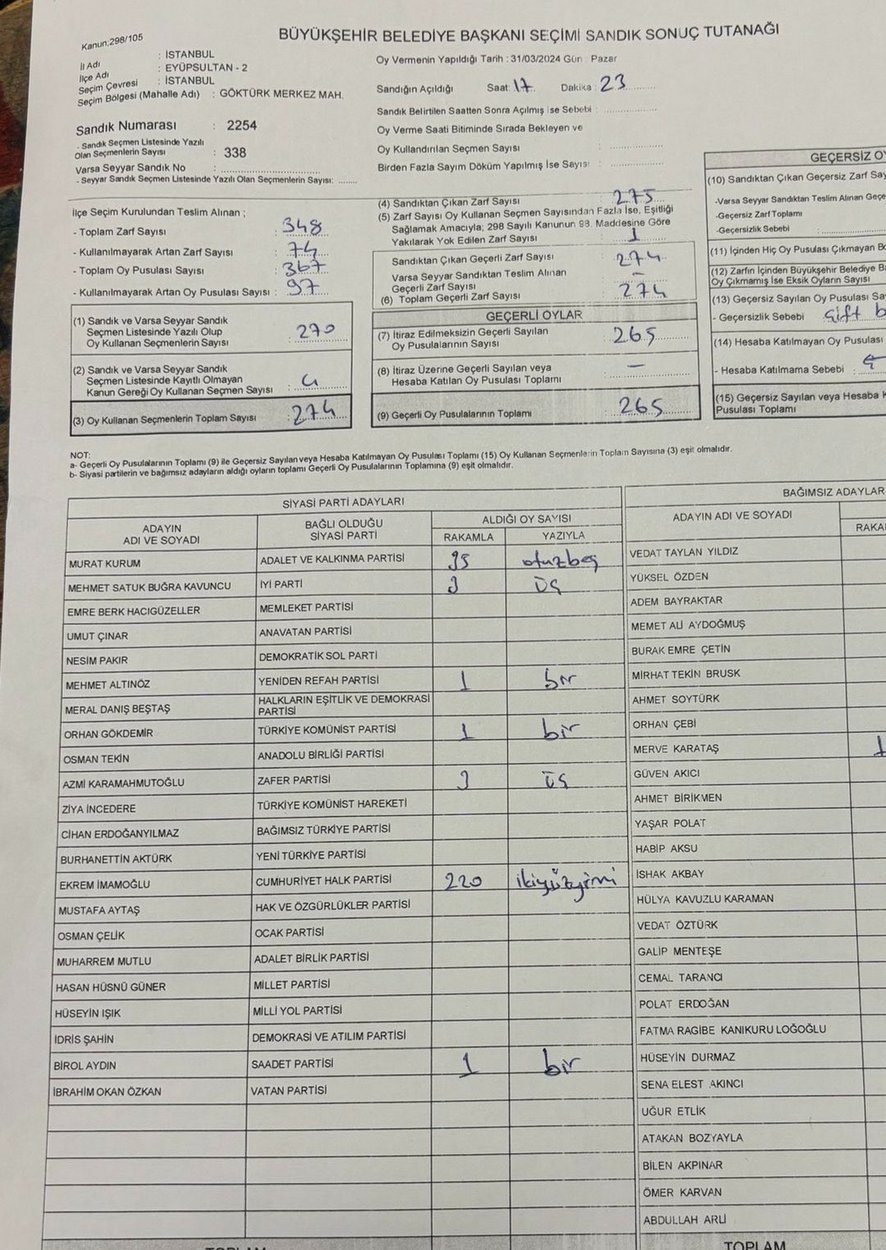 Kanun.298/105
BÜYÜKŞEHİR BELEDİYE BAŞKANI SEÇİMİ SANDIK SONUÇ TUTANAĞI
İl Adı : İSTANBUL
İlçe Adı : EYÜPSULTAN - 2
Seçim Çevresi : İSTANBUL
Seçim Bölgesi (Mahalle Adı) : GÖKTÜRK MERKEZ MAH.
Sandık Numarası : 2254
- Sandık Seçmen Listesinde Yazılı
Olan Seçmenlerin Sayısı : 338
Varsa Seyyar Sandık No :
- Seyyar Sandık Seçmen Listesinde Yazılı Olan Seçmenlerin Sayısı:
Oy Vermenin Yapıldığı Tarih : 31/03/2024 Gün : Pazar
Sandığın Açıldığı Saat : 17 Dakika : 23
Sandık Belirtilen Saatten Sonra Açılmış İse Sebebi :
Oy Verme Saati Bitiminde Sırada Bekleyen ve
Oy Kullandırılan Seçmen Sayısı :
Birden Fazla Sayım Döküm Yapılmış İse Sayısı :
İlçe Seçim Kurulundan Teslim Alınan ;
- Toplam Zarf Sayısı : 348
- Kullanılmayarak Artan Zarf Sayısı : 74
- Toplam Oy Pusulası Sayısı : 367
- Kullanılmayarak Artan Oy Pusulası Sayısı : 97
(1) Sandık ve Varsa Seyyar Sandık
Seçmen Listesinde Yazılı Olup
Oy Kullanan Seçmenlerin Sayısı : 270
(2) Sandık ve Varsa Seyyar Sandık
Seçmen Listesinde Kayıtlı Olmayan
Kanun Gereği Oy Kullanan Seçmen Sayısı : 4
(3) Oy Kullanan Seçmenlerin Toplam Sayısı : 274
(4) Sandıktan Çıkan Zarf Sayısı : 275
(5) Zarf Sayısı Oy Kullanan Seçmen Sayısından Fazla İse, Eşitliği
Sağlamak Amacıyla; 298 Sayılı Kanunun 98. Maddesine Göre
Yakılarak Yok Edilen Zarf Sayısı : 1
Sandıktan Çıkan Geçerli Zarf Sayısı : 274
Varsa Seyyar Sandıktan Teslim Alınan
Geçerli Zarf Sayısı : –
(6) Toplam Geçerli Zarf Sayısı : 274
GEÇERLİ OYLAR
(7) İtiraz Edilmeksizin Geçerli Sayılan
Oy Pusulalarının Sayısı : 265
(8) İtiraz Üzerine Geçerli Sayılan veya
Hesaba Katılan Oy Pusulası Toplamı : –
(9) Geçerli Oy Pusulalarının Toplamı : 265
GEÇERSİZ OY
(10) Sandıktan Çıkan Geçersiz Zarf Say
-Varsa Seyyar Sandıktan Teslim Alınan Geçe
-Geçersiz Zarf Toplamı
-Geçersizlik Sebebi :
(11) İçinden Hiç Oy Pusulası Çıkmayan Bo
(12) Zarfın İçinden Büyükşehir Belediye B
Oy Çıkmamış İse Eksik Oyların Sayısı
(13) Geçersiz Sayılan Oy Pusulası Sa
- Geçersizlik Sebebi : Çift b
(14) Hesaba Katılmayan Oy Pusulası
- Hesaba Katılmama Sebebi :
(15) Geçersiz Sayılan veya Hesaba K
Pusulası Toplamı
NOT:
a- Geçerli Oy Pusulalarının Toplamı (9) ile Geçersiz Sayılan veya Hesaba Katılmayan Oy Pusulası Toplamı (15) Oy Kullanan Seçmenlerin Toplam Sayısına (3) eşit olmalıdır.
b- Siyasi partilerin ve bağımsız adayların aldığı oyların toplamı Geçerli Oy Pusulalarının Toplamına (9) eşit olmalıdır.
SİYASİ PARTİ ADAYLARI
ADAYIN ADI VE SOYADI
BAĞLI OLDUĞU SİYASİ PARTİ
ALDIĞI OY SAYISI
RAKAMLA YAZIYLA
MURAT KURUM ADALET VE KALKINMA PARTİSİ 35 otuzbeş
MEHMET SATUK BUĞRA KAVUNCU İYİ PARTİ 3 üç
EMRE BERK HACIGÜZELLER MEMLEKET PARTİSİ
UMUT ÇINAR ANAVATAN PARTİSİ
NESİM PAKIR DEMOKRATİK SOL PARTİ
MEHMET ALTINÖZ YENİDEN REFAH PARTİSİ 1 bir
MERAL DANIŞ BEŞTAŞ HALKLARIN EŞİTLİK VE DEMOKRASİ PARTİSİ
ORHAN GÖKDEMİR TÜRKİYE KOMÜNİST PARTİSİ 1 bir
OSMAN TEKİN ANADOLU BİRLİĞİ PARTİSİ
AZMİ KARAMAHMUTOĞLU ZAFER PARTİSİ 3 üç
ZİYA İNCEDERE TÜRKİYE KOMÜNİST HAREKETİ
CİHAN ERDOĞANYILMAZ BAĞIMSIZ TÜRKİYE PARTİSİ
BURHANETTİN AKTÜRK YENİ TÜRKİYE PARTİSİ
EKREM İMAMOĞLU CUMHURİYET HALK PARTİSİ 220 ikiyüzyirmi
MUSTAFA AYTAŞ HAK VE ÖZGÜRLÜKLER PARTİSİ
OSMAN ÇELİK OCAK PARTİSİ
MUHARREM MUTLU ADALET BİRLİK PARTİSİ
HASAN HÜSNÜ GÜNER MİLLET PARTİSİ
HÜSEYİN IŞIK MİLLİ YOL PARTİSİ
İDRİS ŞAHİN DEMOKRASİ VE ATILIM PARTİSİ
BİROL AYDIN SAADET PARTİSİ 1 bir
İBRAHİM OKAN ÖZKAN VATAN PARTİSİ
TOPLAM
BAĞIMSIZ ADAYLAR
ADAYIN ADI VE SOYADI
RAKA
VEDAT TAYLAN YILDIZ
YÜKSEL ÖZDEN
ADEM BAYRAKTAR
MEMET ALİ AYDOĞMUŞ
BURAK EMRE ÇETİN
MİRHAT TEKİN BRUSK
AHMET SOYTÜRK
ORHAN ÇEBİ
MERVE KARATAŞ 1
GÜVEN AKICI
AHMET BİRİKMEN
YAŞAR POLAT
HABİP AKSU
İSHAK AKBAY
HÜLYA KAVUZLU KARAMAN
VEDAT ÖZTÜRK
GALİP MENTEŞE
CEMAL TARANCI
POLAT ERDOĞAN
FATMA RAGİBE KANIKURU LOĞOĞLU
HÜSEYİN DURMAZ
SENA ELEST AKINCI
UĞUR ETLİK
ATAKAN BOZYAYLA
BİLEN AKPINAR
ÖMER KARVAN
ABDULLAH ARLI
TOPLAM